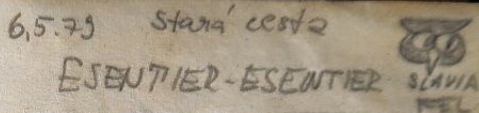 6,5.79 Stará cesta
ESENTIER-ESENTIER
SLAVIA
FEL